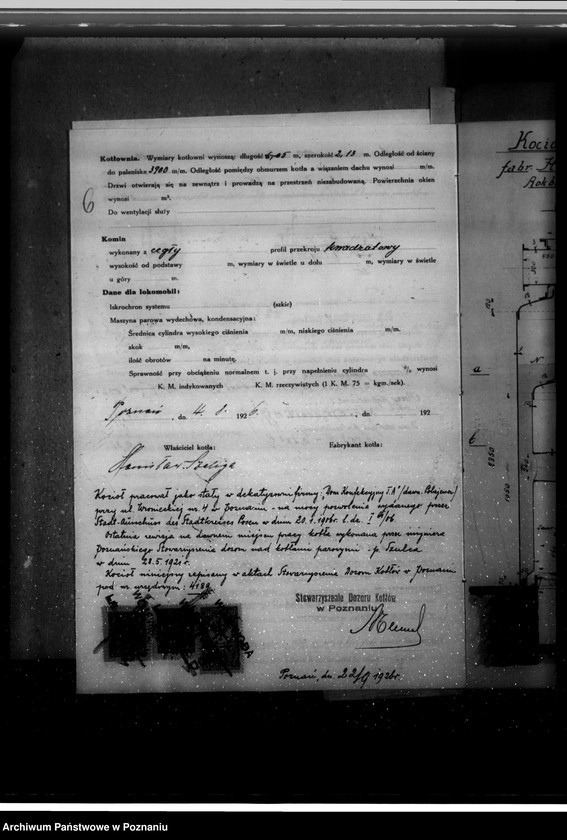 Kotłownia. Wymiary kotłowni wynoszą: długość 6,05 m, szerokość 2,13 m. Odległość od ściany
do paleniska 3900 m/m. Odległość pomiędzy obmurzem kotła a wiązaniem dachu wynosi m/m.
Drzwi otwierają się na zewnątrz i prowadzą na przestrzeń niezabudowaną. Powierzchnia okien
wynosi m².
Do wentylacji służy
6
Komin
wykonany z cegły profil przekroju kwadratowy
wysokość od podstawy m, wymiary w świetle u dołu m, wymiary w świetle
u góry m.
Dane dla lokomobil:
Iskrochron systemu (szkic)
Maszyna parowa wydechowa, kondensacyjna:
Średnica cylindra wysokiego ciśnienia m/m, niskiego ciśnienia m/m.
skok m/m,
ilość obrotów na minutę.
Sprawność przy obciążeniu normalnem t. j. przy napełnieniu cylindra % wynosi
K. M. indykowanych K. M. rzeczywistych (1 K. M. 75 = kgm./sek).
Poznań, dn. 4. 8. 1926. , dn. 192
Właściciel kotła: Fabrykant kotła:
Stanisław Szeliga
Kocioł pracował jako stały w dekatyzowni firmy "Dom Konfekcyjny T.A" /dawn.
przy ul. Wronieckiej nr. 4 w Poznaniu - na mocy pozwolenia wydanego przez
Stadt-Ausschuss des Stadtkreises Posen w dniu 20.7.1906r. l. dz. I /06
Ostatnia rewizja na dawnem miejscu pracy kotła wykonana przez inżyniera
Poznańskiego Stowarzyszenia dozoru nad kotłami parowymi - p.
w dniu 28.5.1921 r.
Kocioł niniejszy zapisany w aktach Stowarzyszenia Dozoru Kotłów w Poznaniu
pod nr. urzędowym: 4189
Stowarzyszenie Dozoru Kotłów
w Poznaniu
Poznań, dn. 22/9 1926r.
Kocio
fabr.
Rok b
450
a
b
N
1350
Archiwum Państwowe w Poznaniu